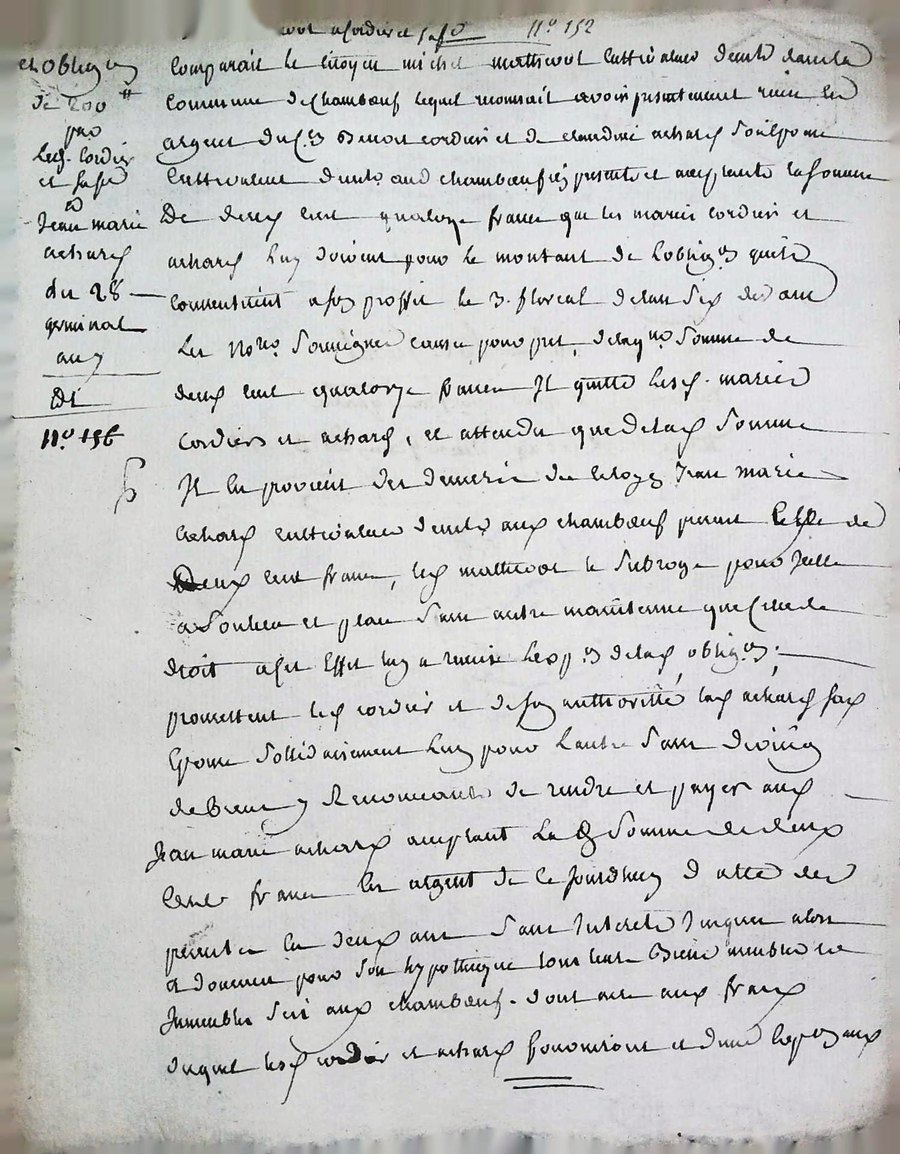 N.o 152
et obligon
de 200 ₶
par
lesd. cordier
et sa fe
a
Jean marie
achard
du 28
germinal
an 7
De
N.o 156
Comparait le citoyen michel matticot cultivateur demt dans la
commune de chambœuf lequel reconnait avoir presentement reçu en
argent du C.en Benoit cordier et de claudine achard son epouse
cultivateurs demts aud chambœuf icy presents et acceptants la somme
De deux cent quatorze francs que les mariés cordier et
achard luy doivent pour le montant de l'oblig.on quils
consentirent a son proffit le 3. floreal de lan six devant
les no.res soussignés cause pour pret, de laqlle somme de
deux cent quatorze francs Il quitte lesd. mariés
cordier et achard, et attendu que de lad somme
Il en provient des deniers du citoyen Jean marie
achard cultivateur demt aud chambœuf present celle de
Deux cent francs, led matticot le subroge pour icelle
a son lieu et place sans autre maintenue que celle de
droit a cet effet luy a remis l'exp.on de lad oblig.on;
promettent led cordier et de son authorité lad achard sad
Epouse sollidairement l'un pour l'autre sans division
de Biens y Renonceants de rendre et payer aud
Jean marie achard acceptant lad somme de deux
cents francs en argent de ce jourdhuy date des
presentes en deux ans sans interets jusques alors
et donnent pour son hypotheque tous leurs Biens meubles et
immeubles sis aud chambœuf. dont acte aux frais
duquel lesd cordier et achard fourniront et d'une exp.on aud